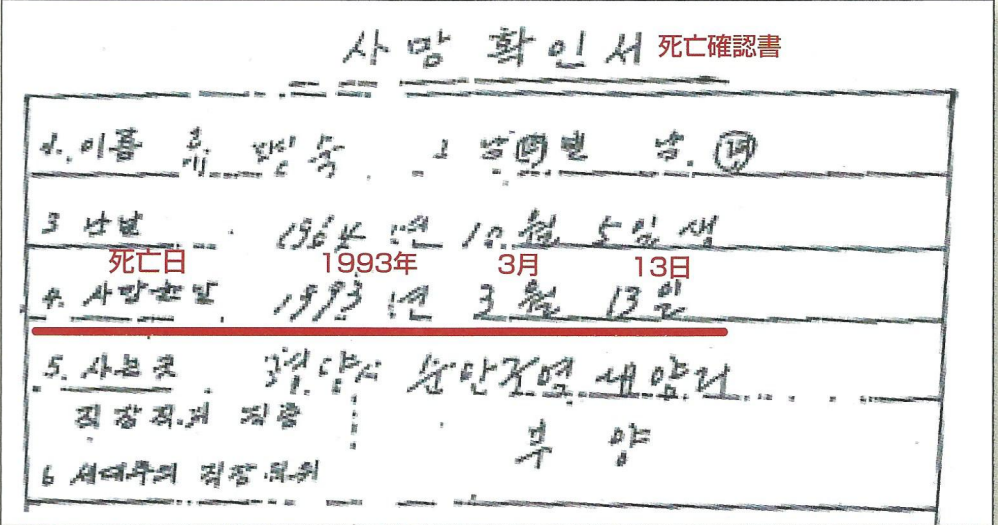 사망 확인서 死亡確認書
1. 이름 2 남녀별 남. 녀
3 난날 1964년 10월 5일생
死亡日 1993年 3月 13日
4. 사망한날 1993년 3월 13일
5. 사는곳 평양시 순안구역
직장직위 직종 부양
6 세대주의 직장직위